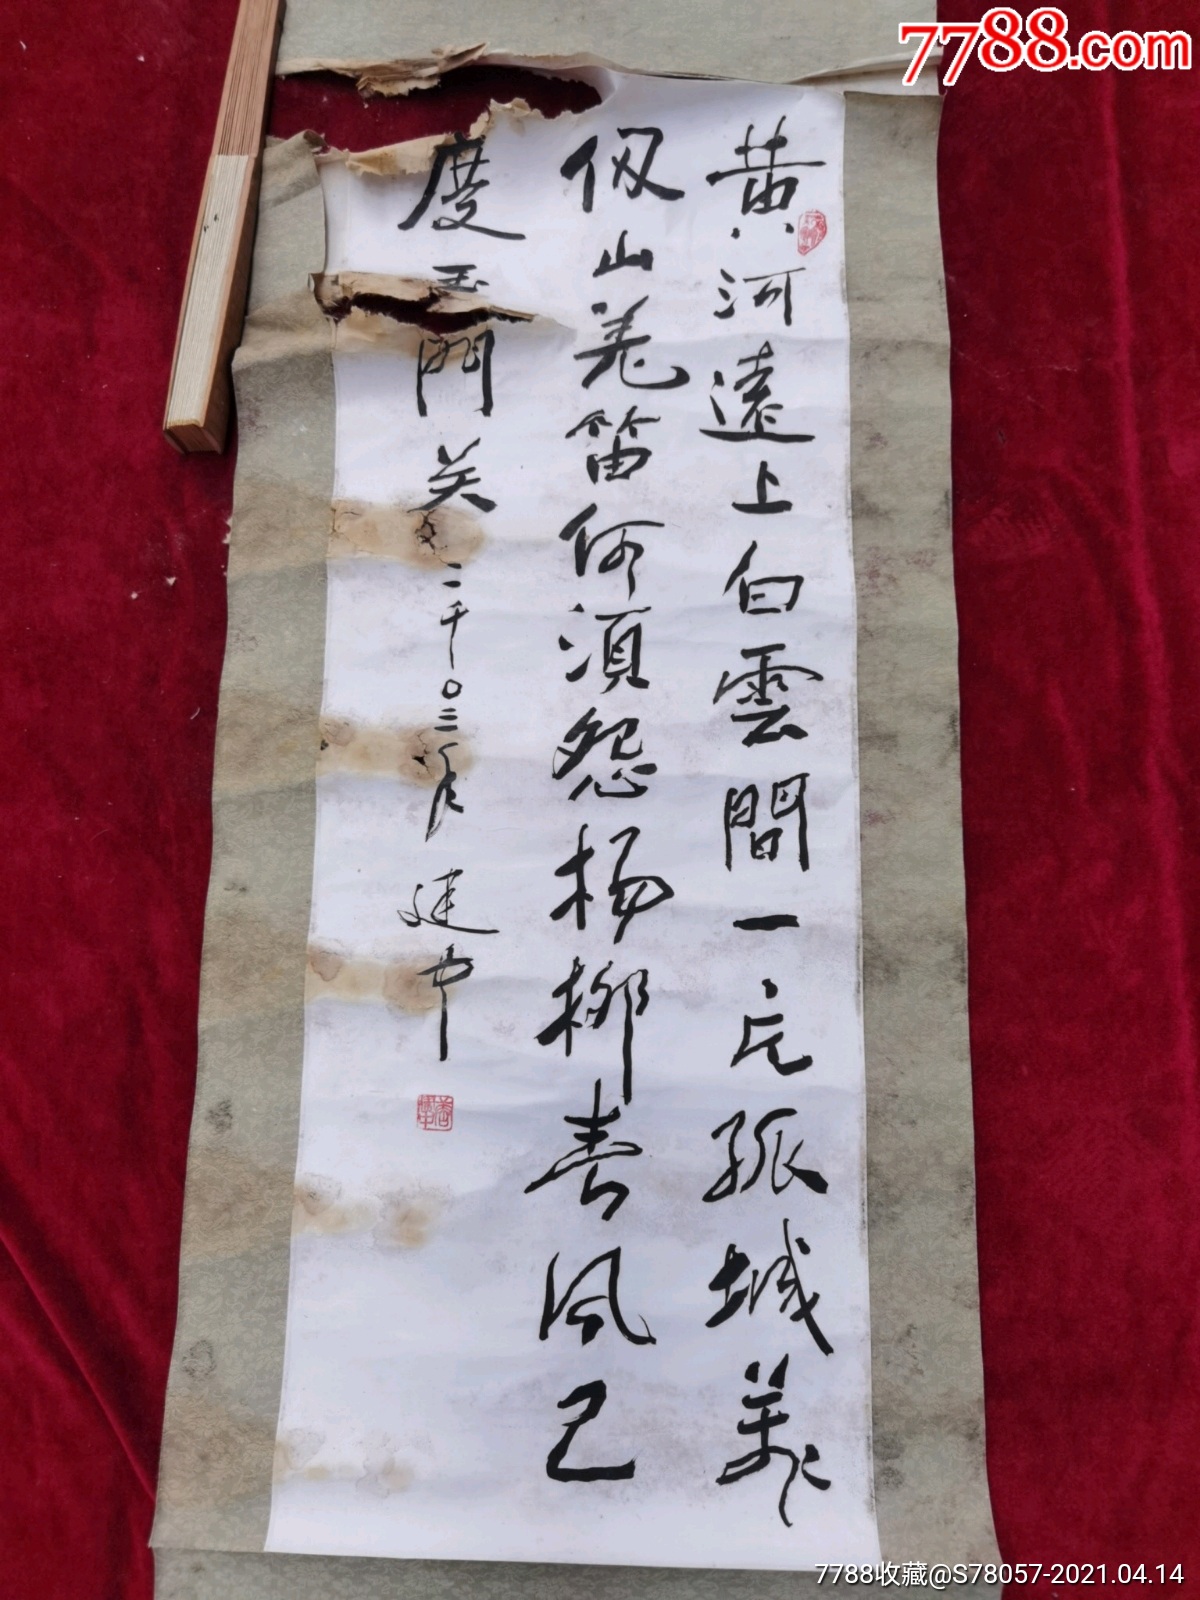 7788.com
黄河遠上白雲間一片孤城萬
仭山羌笛何須怨楊柳春風已
度玉門关二千〇三年建中
7788收藏@S78057-2021.04.14